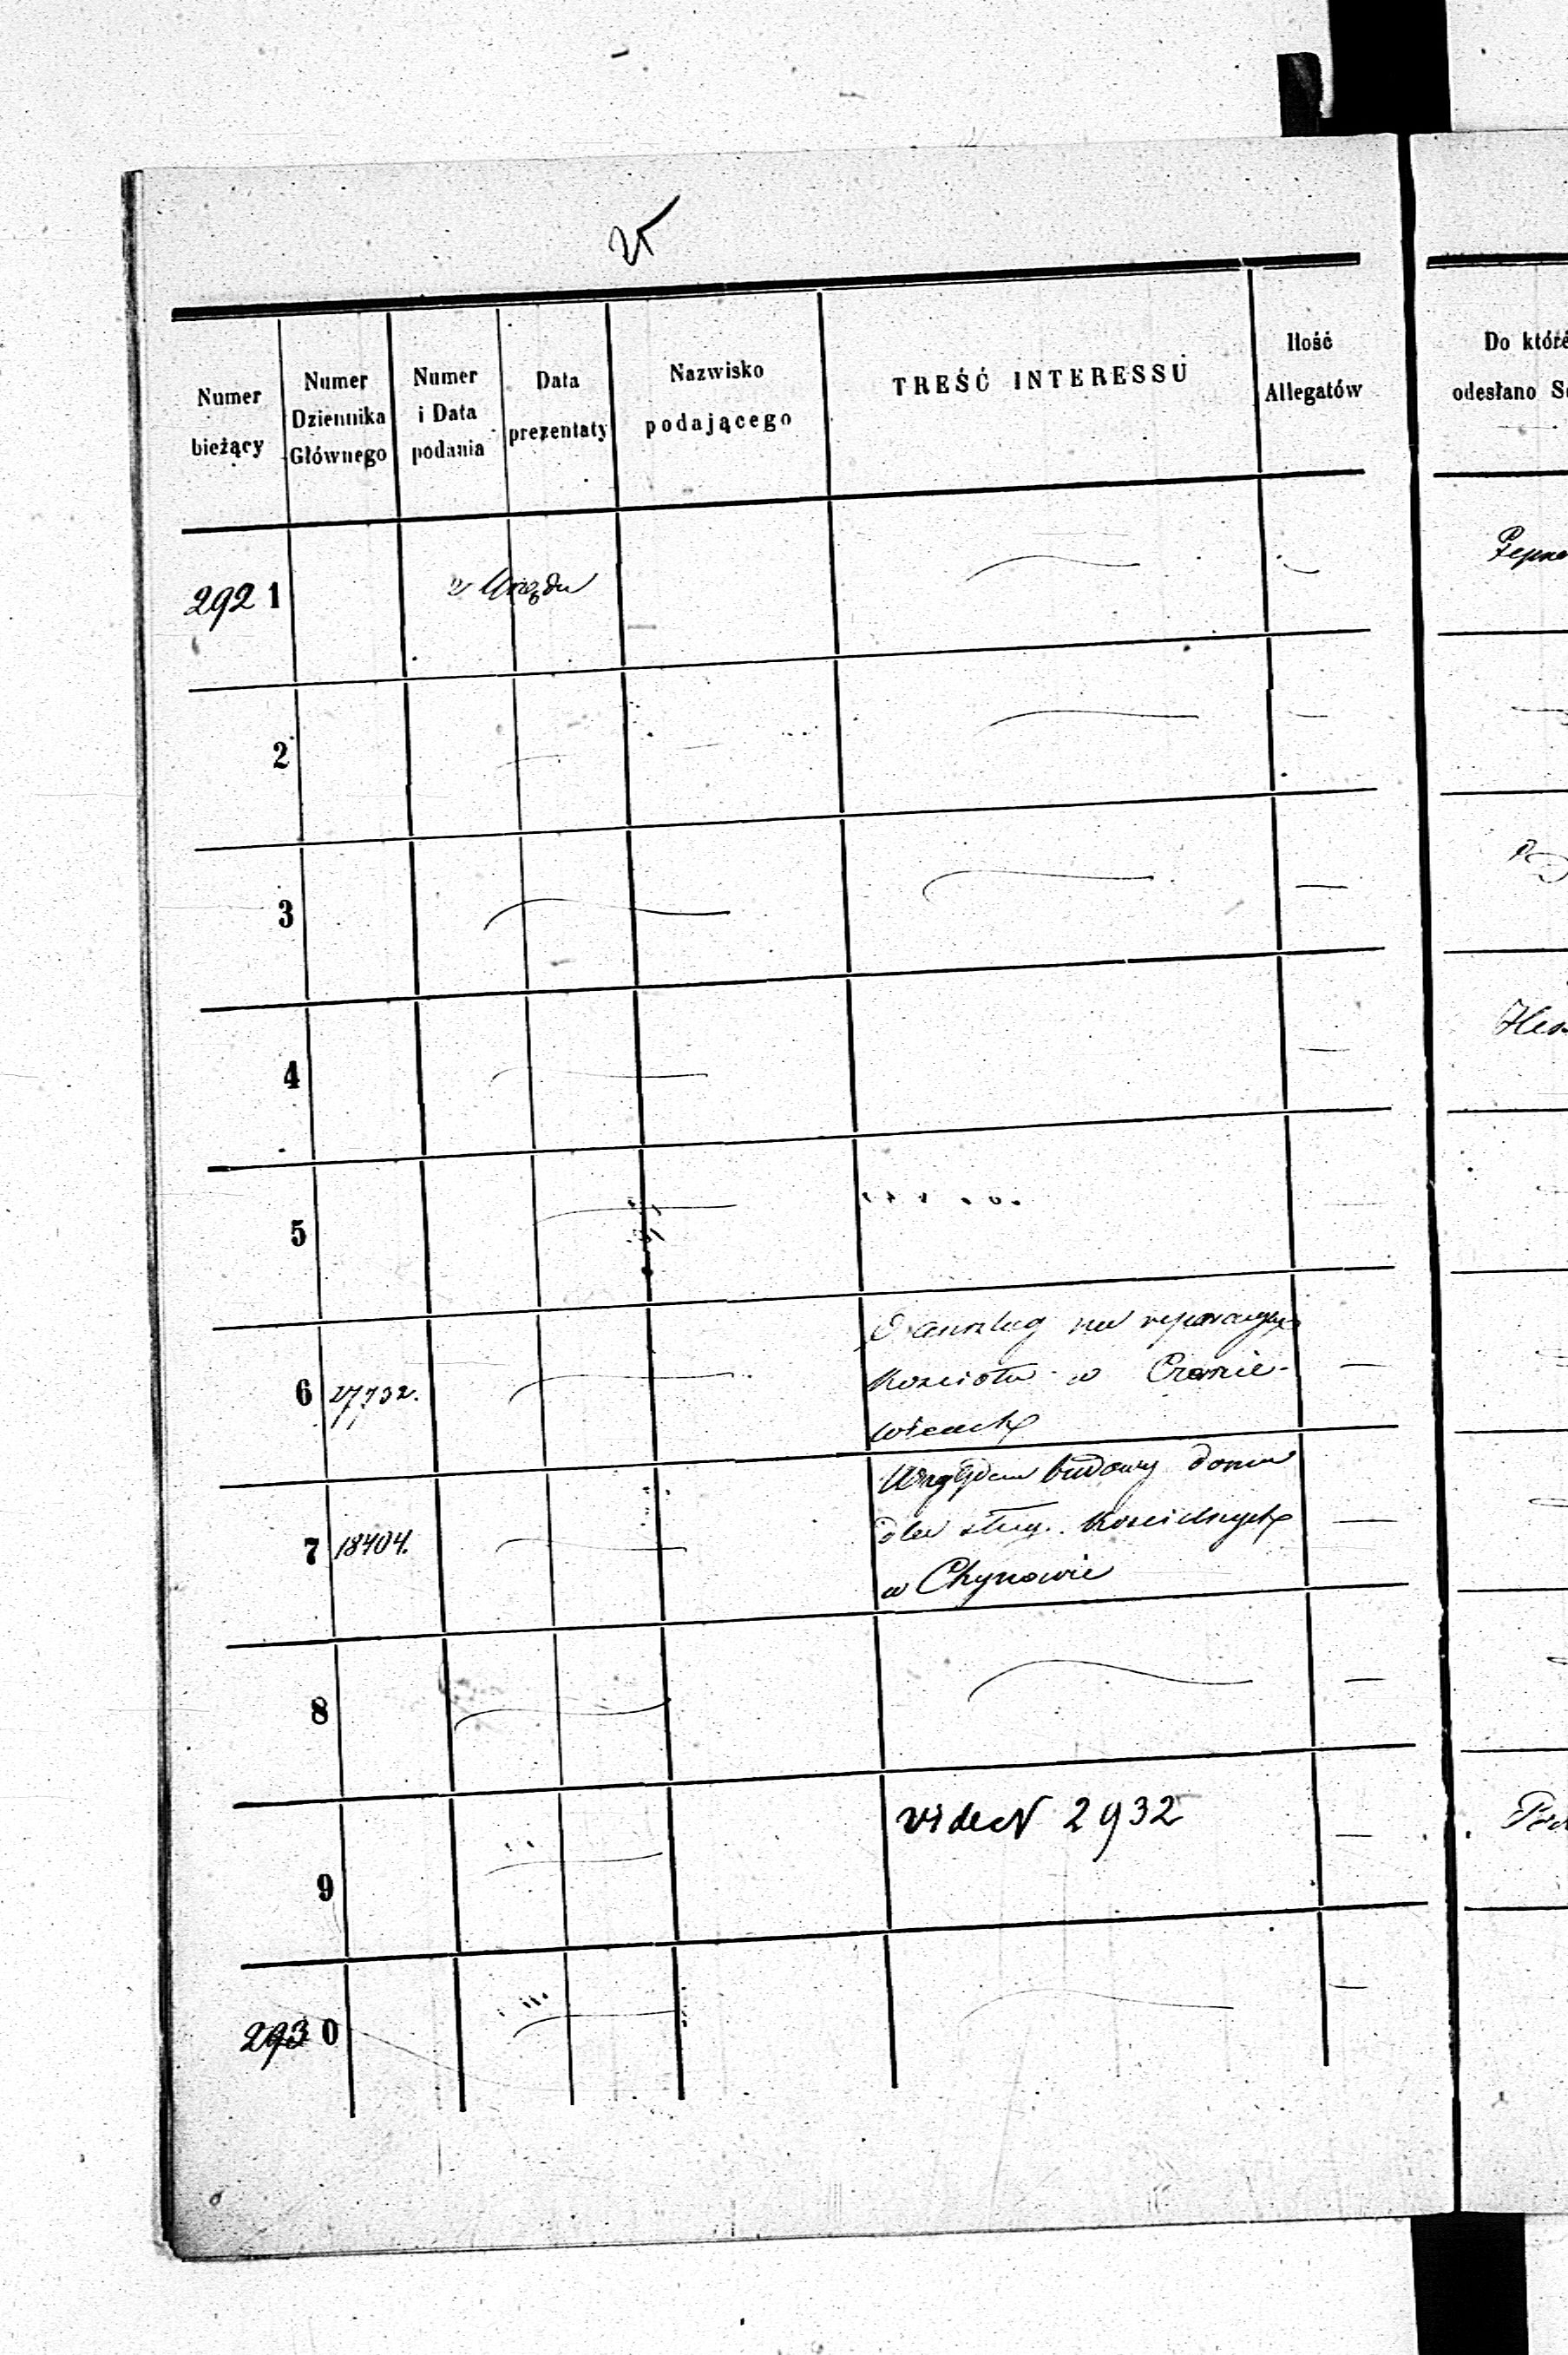 Numer bieżący
Numer Dziennika Głównego
Numer i Data podania
Data prezentaty
Nazwisko podającego
TREŚĆ INTERESSU
Ilość Allegatów
Do któré
odesłano S
2921
z Urzędu
2
3
4
5
6
27732.
Anszlag na reparacyę
Kościoła w
7
18404.
Względem budowy domu
dla sług. Kościelnych
w Chynowie
8
9
vide N 2932
2930